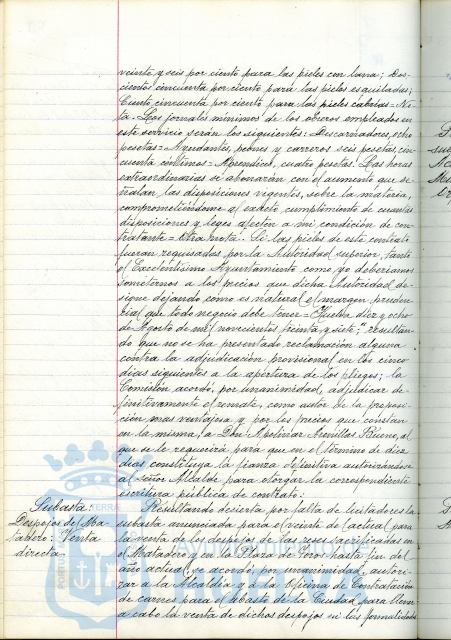 veinte y seis por ciento para las pieles con lana; Dos-
cientos cincuenta por ciento para las pieles esquiladas;
Ciento cincuenta por ciento para las pieles cabrias= No-
ta. Los jornales mínimos de los obreros empleados en
este servicio serán los siguientes: Descarnadores, ocho
pesetas= Ayudantes, peones y carreros seis pesetas, cin-
cuenta céntimos= Aprendices, cuatro pesetas. Las horas
extraordinarias se abonarán con el aumento que se-
ñalan las disposiciones vigentes, sobre la materia,
comprometiéndome al exacto cumplimiento de cuantas
disposiciones y leyes afecten a mi condición de con-
tratante= Otra nota. Si las pieles de este contrato
fueran requisadas por la Autoridad superior, tanto
el Excelentísimo Ayuntamiento como yo deberíamos
someternos a los precios que dicha Autoridad de-
signe dejando como es natural el margen pruden-
cial que todo negocio debe tener= Huelva diez y ocho
de Agosto de mil novecientos treinta y siete"; resultan-
do que no se ha presentado reclamación alguna
contra la adjudicación provisional en los cinco
días siguientes a la apertura de los pliegos; la
Comisión acordó, por unanimidad, adjudicar de-
finitivamente el remate, como autor de la proposi-
ción mas ventajosa y por los precios que constan
en la misma, a Don Apolinar Arenillas Bueno, al
que se le requerirá para que en el término de diez
días constituya la fianza definitiva autorizándose
al Señor Alcalde para otorgar la correspondiente
escritura pública de contrato:
Subasta:
Despojos de Ma-
tadero: Venta
directa
Resultando desierta por falta de licitadores la
subasta anunciada para el veinte del actual para
la venta de los despojos de las reses sacrificadas en
el Matadero y en la Plaza de Toros hasta fin del
año actual, se acordó, por unanimidad, autori-
zar a la Alcaldía y a la Oficina de Contratación
de carnes para el abasto de la Ciudad para llevar
a cabo la venta de dichos despojos sin las formalidades